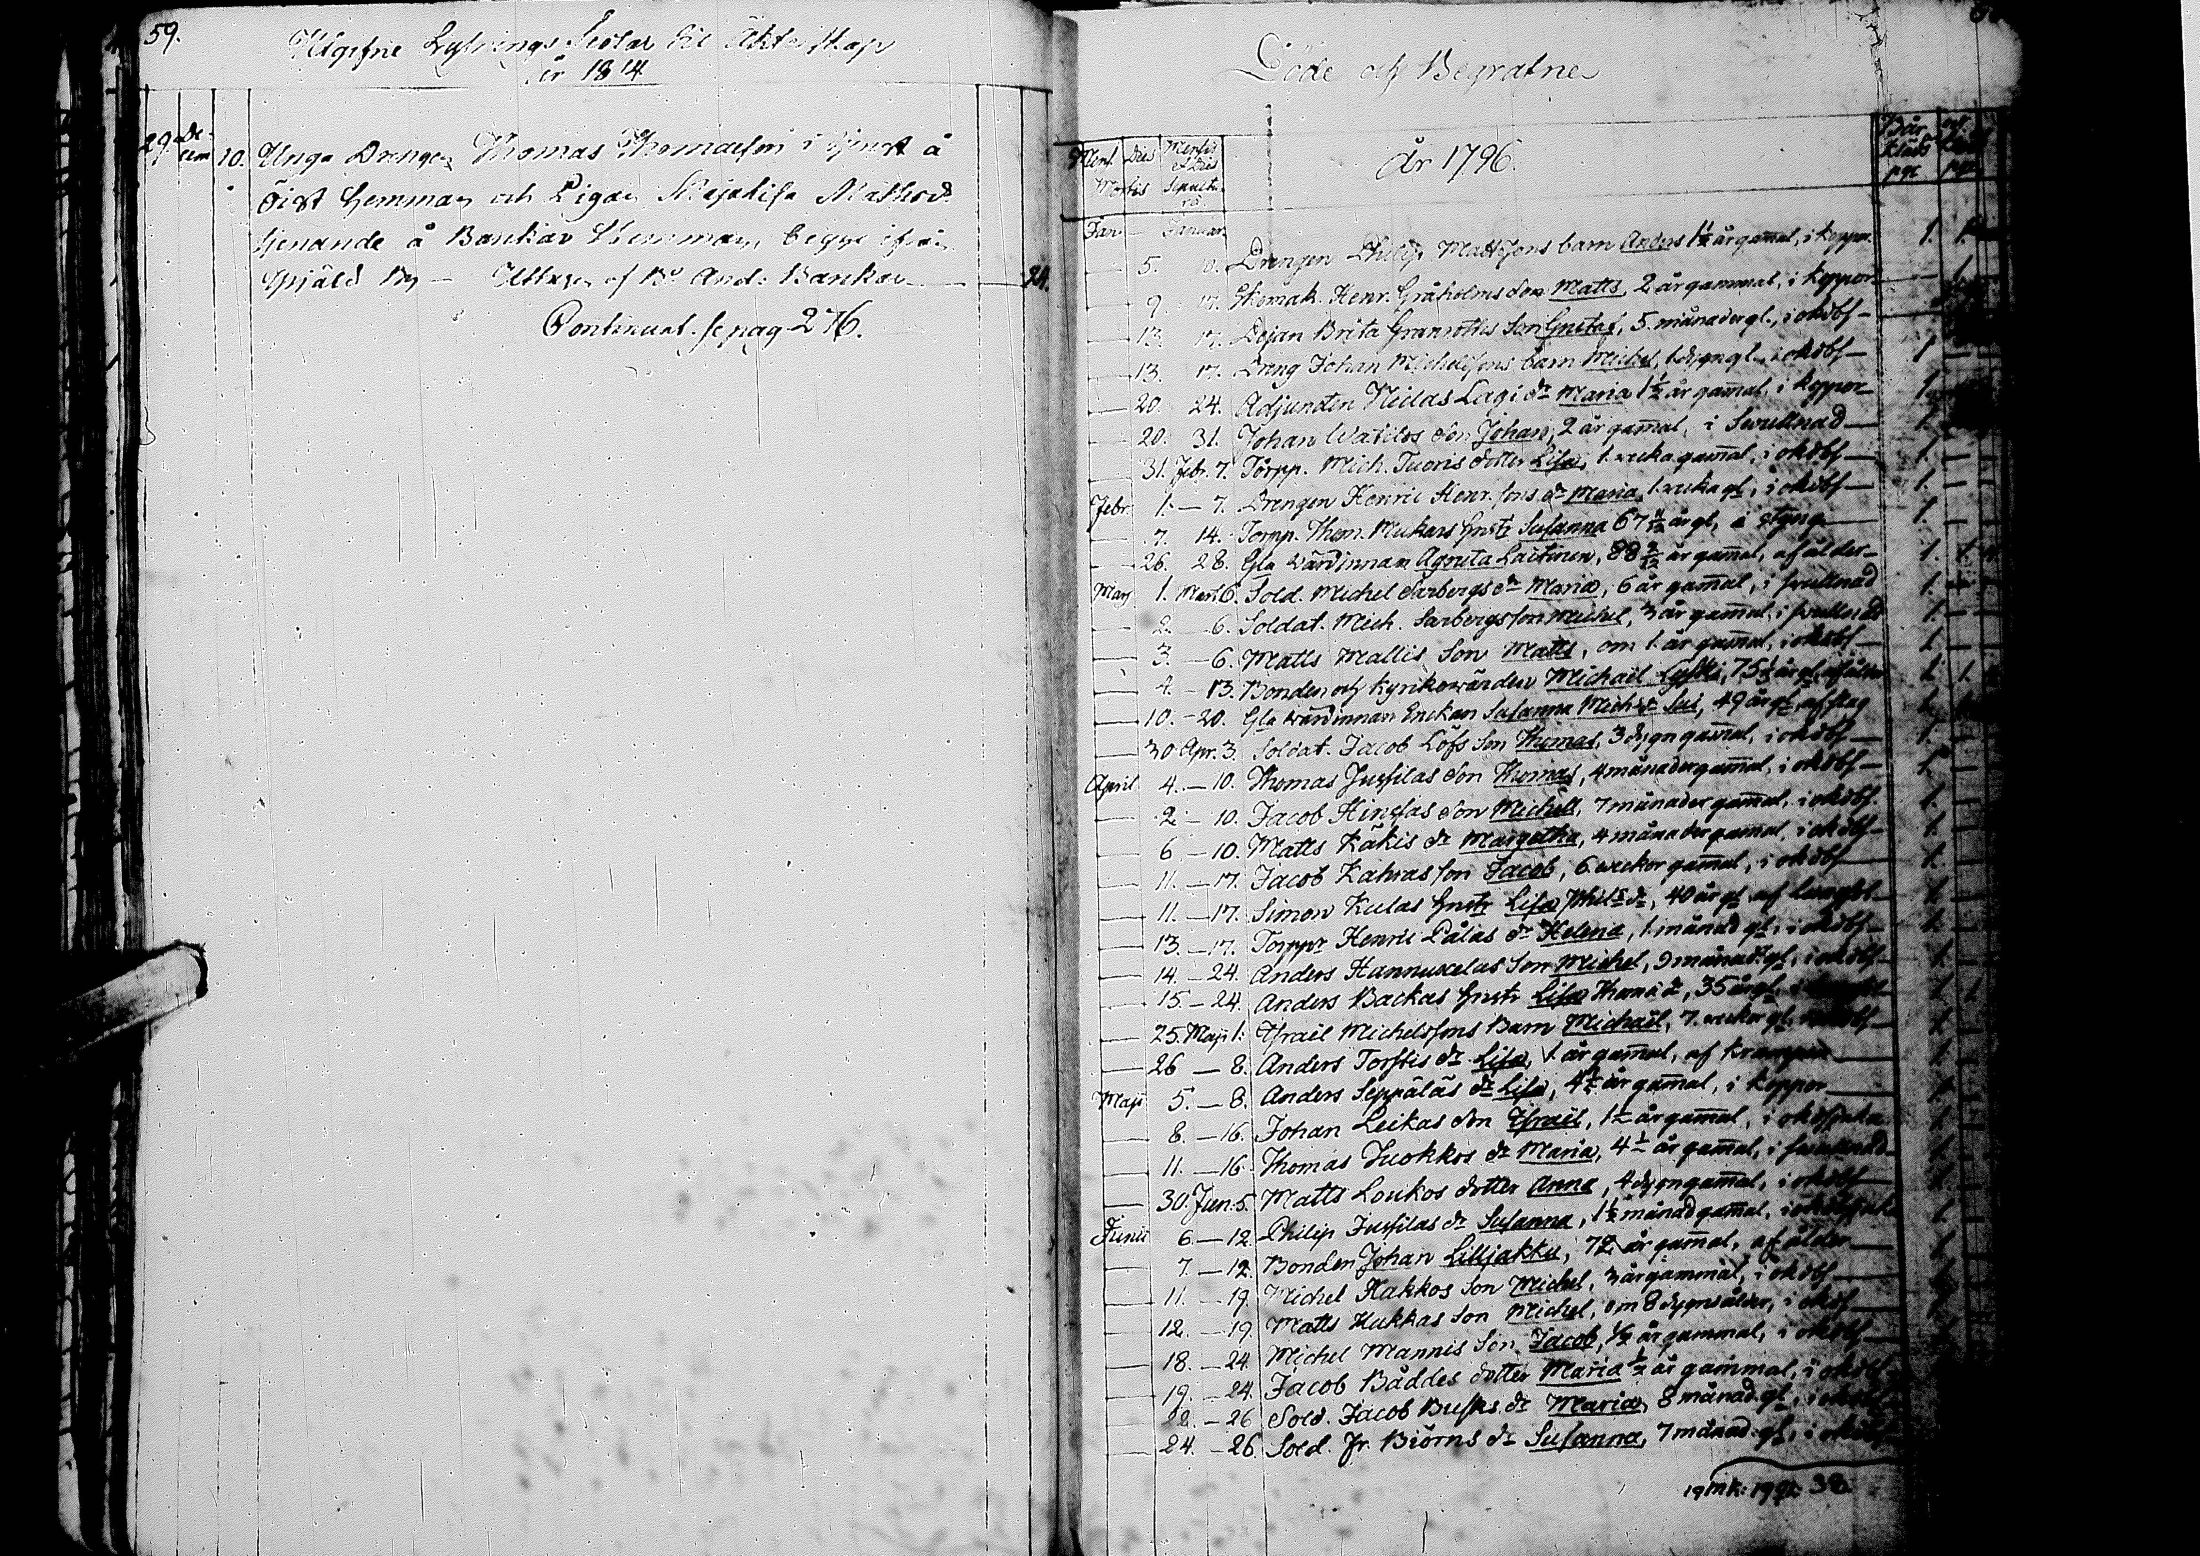 59.
Utgifne Lysnings Sedlar til Äktaskap
år 1814
29. Decem 10. Unge Drengen Thomas Thomasson i tjenst å
Öist hemman och Pigan Maja Lisa Mattsdr
tjenande å Bankas Hemman, begge ifrån
by — Uttagen af And: Bankas — 24.
Continuat. se pag 276.
Döde och Begrafne
År 1796.
Mens. Dies Mensis et Dies
Mortis Sepultu-
ræ
Bår kläde pge
Jan — Januar
5. Drengen Philip Mattssons barn Anders 1½ år gamal, i koppor. 1. 1.
9 17. Henr. Gråholms son Matts, 2 år gammal, i koppor — 1.
13. 17. Pojan Brita Granroths Son Gustaf, 5. månader gl., i okdbs —
13. 17. Dreng Johan Michelssons barn Michel, 1. dygn gl. i okdbs — 1 —
20. 24. Adjuncten Niclas Lagi dr Maria 1½ år gamal, i koppor — 1
20. 31. Johan Watilos son Johan, 2 år gamal, i Swullnad — 1.
31. Febr. 7. Torpp. Mich. Tuoris dotter Lisa, 1. wecka gamal, i okdbs — 1. —
Febr. 1. — 7. Drengen Henric Henr.sons dr Maria, 1. wecka gl, i okdbs — 1. —
7. 14. Torpp. Thom. Mukars hustr Susanna 67 år gl, i styng — 1.
26. 28. Gla wärdinnan Agneta Laitinen, 88 år gamal, af ålder — 1. 1.
Mars 1. Mart. 6. Sold. Michel Sarbergs dr Maria, 6 år gamal, i swullnad 1. —
2. 6. Soldat. Mich. Sarbergs son Michel, 3 år gamal, i swullnad 1. —
3. — 6. Matts Mallis Son Matts, om 1. år gamal, i okdbs — 1. —
4. — 13. Bonden och Kyrkowärden Michael Lyski, 75½ år gl, af ålder 1. 1.
10. — 20. Gla wärdinnan Enckan Susanna Michdr Sui, 49 år gl, af slag 1.
30 Apr. 3. Soldat. Jacob Löfs Son Thomas, 3 dygn gamal, i okdbs — 1.
April 4. — 10. Thomas Jusfilas son Thomas, 4 månader gamal, i okdbs — 1. —
2 — 10. Jacob Hinsas son Michell, 7 månader gamal, i okdbs. 1.
6 — 10. Matts Käkis dr Margetha, 4 månader gamal, i okdbs — 1.
11. — 17. Jacob Kahras son Jacob, 6. weckor gamal, i okdbs — 1.
11. — 17. Simon Kulas hustr Lisa Phils dr, 40 år gl af lungsot — 1
13. — 17. Torppr Henric Pålas dr Helena, 1. månad gl, i okdbs — 1.
14. — 24. Anders Hannuxelas Son Michel, 9 månad. gl, i okdbs — 1.
15 — 24. Anders Backas hustr Lisa Thoms dr, 35 år gl, i 1. 1.
25. Maji 1. Israel Michelssons Barn Michael, 7. weckor gl, i okdbs — 1.
26 — 8. Anders Torstis dr Lisa, 1. år gamal, af — 1.
Maji 5. — 8. Anders Seppäläs dr Lisa, 4½ år gamal, i koppor — 1.
8. — 16. Johan Leikas son Israel, 1½ år gamal, i okdsjuka 1.
11. — 16. Thomas Juokkos dr Maria, 4½ år gamal, i swullnad 1.
30. Jun. 5. Matts Loukos dotter Anna, 4 dygn gamal, i okdbs — 1.
Junii 6 — 12. Philip Jusfilas dr Susanna, 1½ månad gamal, i okdsjuka 1.
7. — 12. Bonden Johan Lilljakku, 72 år gamal, af ålder — 1.
11. — 19. Michel Hakkos Son Michel, 3 år gammal, i okdbs — 1.
12. — 19. Matts Hukkas Son Michel, om 8 dygns ålder, i okdbs — 1.
18. — 24. Michel Mannis Son Jacob, ½ år gammal, i okdbs —
19. — 24. Jacob Båddes dotter Maria ½ år gammal, i okdbs
22. — 26 Sold. Jacob Busks dr Maria, 8 månad. gl, i okdbs
24. — 26. Sold. Jr. Biörns dr Susanna, 7 månad. gl, i okdbs
19 mk. 19 qk. 38.